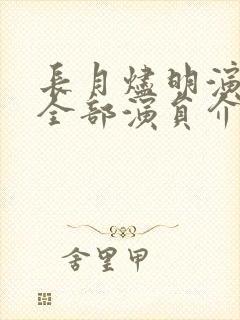 長月燼明演
全部演員介
舍里甲